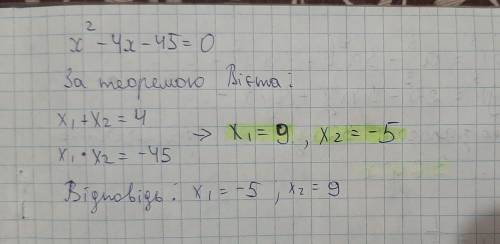 x² - 4x - 45 = 0
За теоремою Вієта:
x₁ + x₂ = 4
x₁ · x₂ = -45
→ x₁ = 9 , x₂ = -5
Відповідь: x₁ = -5 ; x₂ = 9